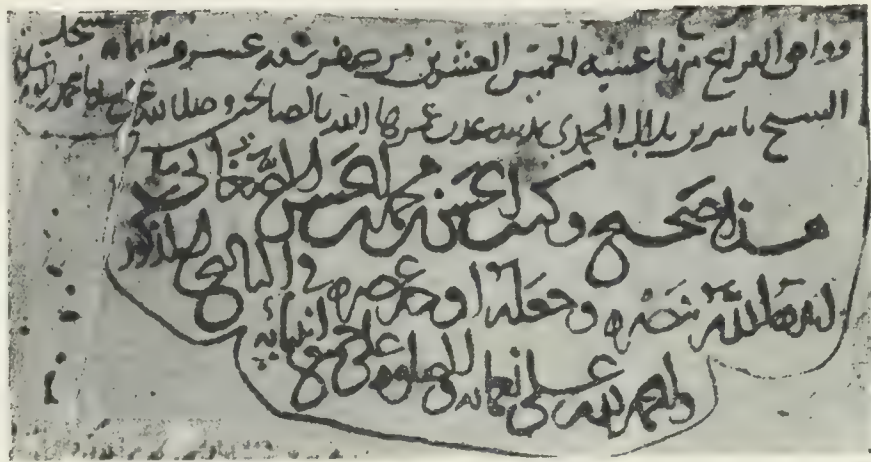 ووافق الفراغ منها عشية الخميس العشرين من صفر سنة عشر وستمائة بمسجد
الشيخ ياسر بن بلال المحمدي بمدينة عدن عمرها الله بالصالحين وصلى الله على سيدنا محمد
هذا صحيح وكتب الحسن بن محمد بن الحسن الصغاني
الله وجعله اوحد عصره في التاريخ المذكور
والحمد لله على نعمائه والصلوة على جميع انبيائه